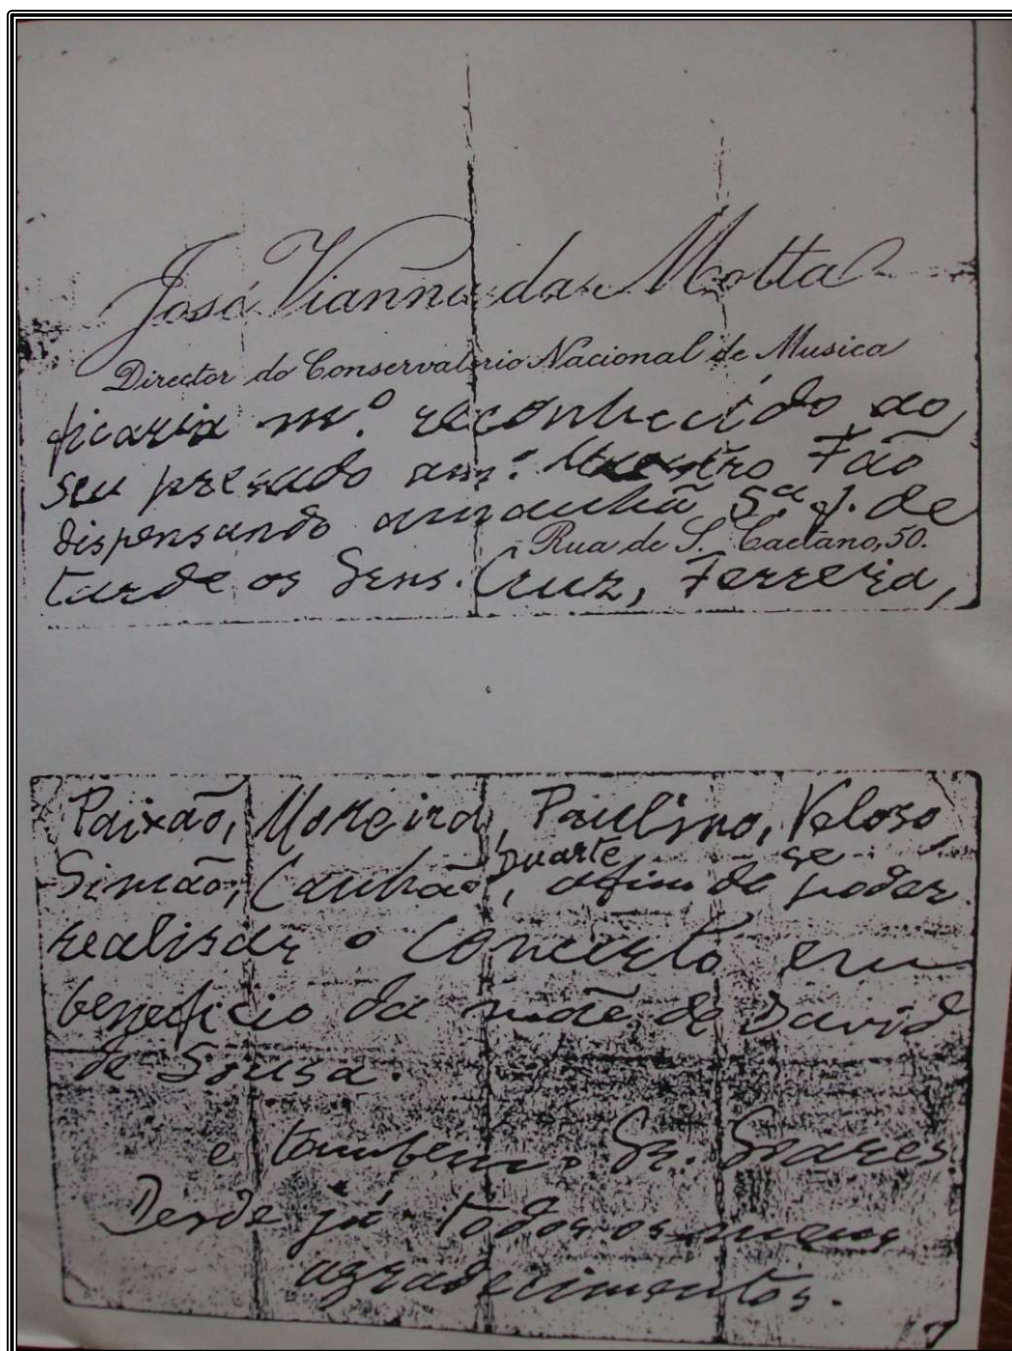 José Vianna da Motta
Director do Conservatorio Nacional de Musica
ficaria m.º reconhecido ao
seu presado am.º Maestro Fão
dispensando amanhã 5.ª f. de
Rua de S. Caetano, 50.
tarde os Snrs. Cruz, Ferreira,
Paixão, Moreira, Paulino, Veloso,
Simão, Canhão, Duarte, afim de se poder
realisar o Concerto em
beneficio da mãe de David
de Sousa.
e tambem o Sr. Soares.
Desde já todos os meus
agradecimentos.